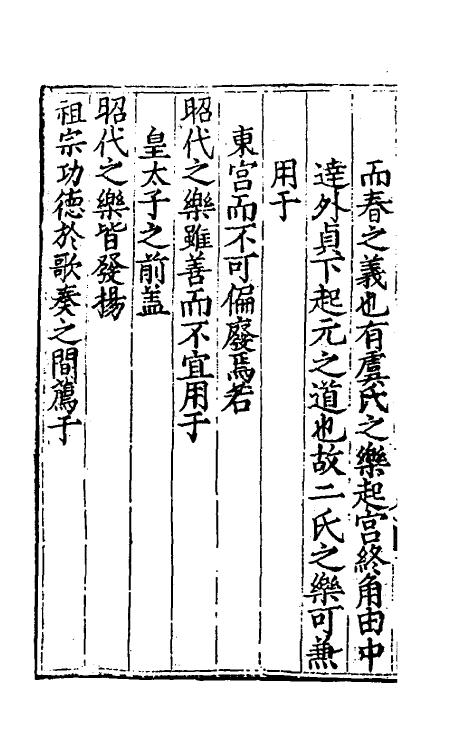 而春之義也有虞氏之樂起宫終角由中
達外貞下起元之道也故二氏之樂可兼
用于
東宫而不可偏廢焉若
昭代之樂雖善而不宜用于
皇太子之前盖
昭代之樂皆發揚
祖宗功德於歌奏之間薦于